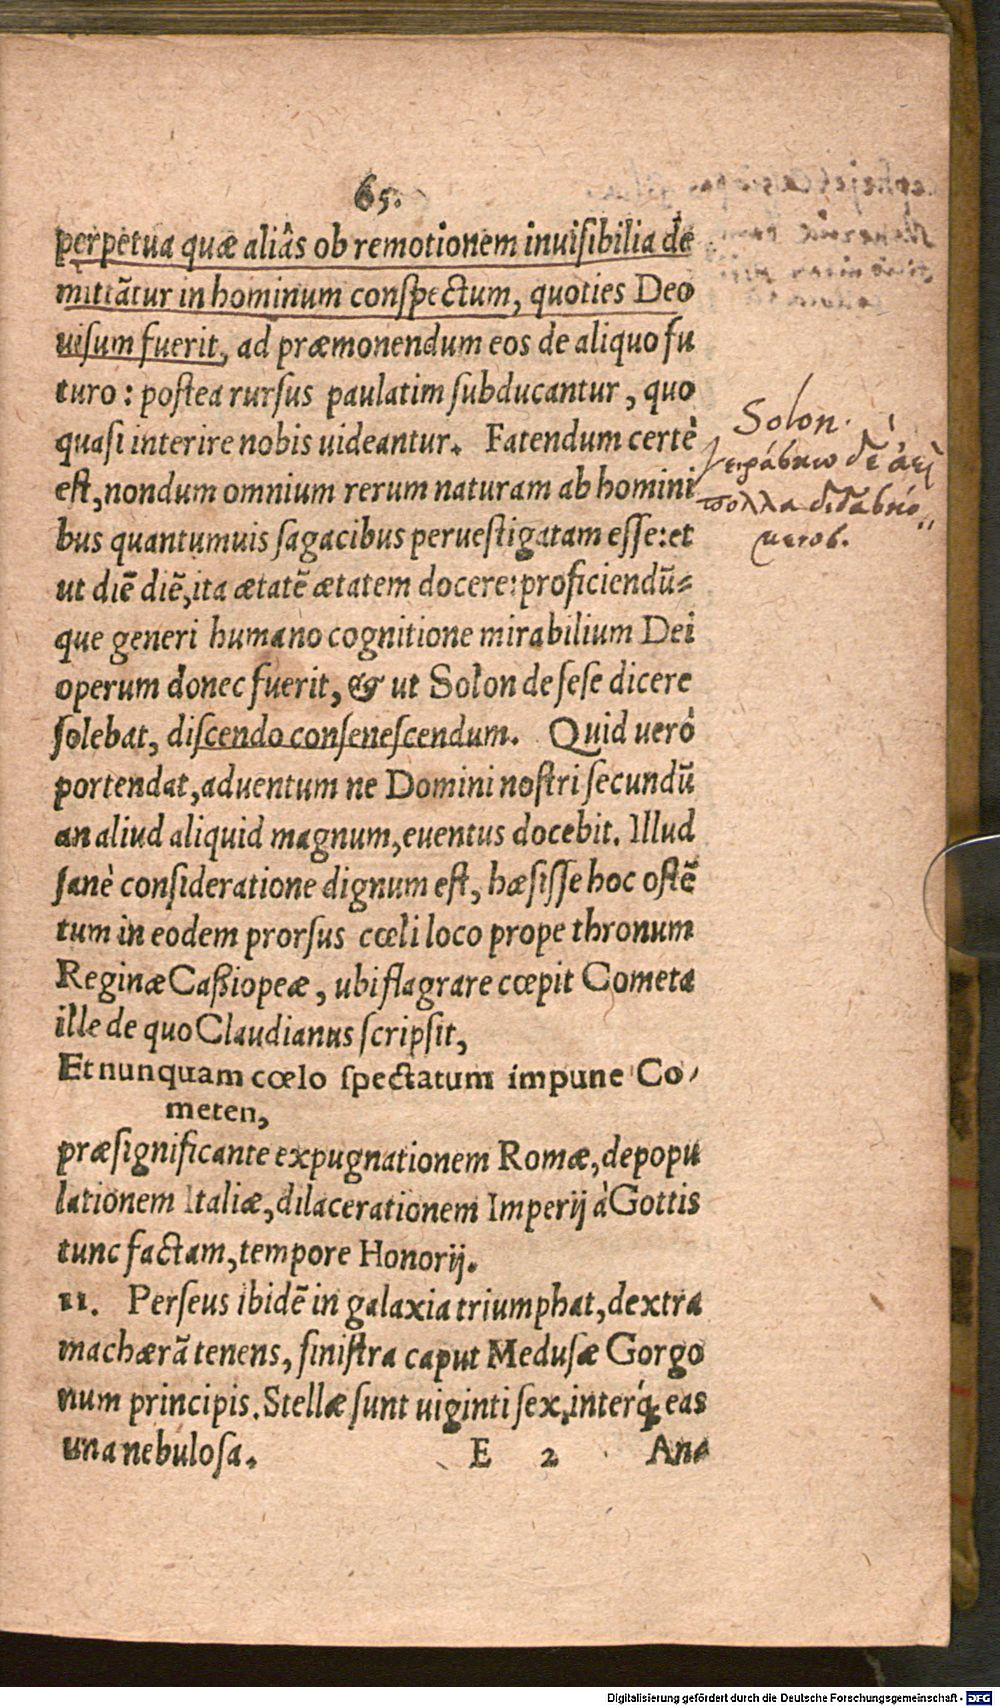 65.
perpetua quæ aliâs ob remotionem inuisibilia de
mittãtur in hominum conspectum, quoties Deo
uisum fuerit, ad præmonendum eos de aliquo fu
turo: postea rursus paulatim subducantur, quo
quasi interire nobis uideantur. Fatendum certè
est, nondum omnium rerum naturam ab homini
bus quantumuis sagacibus peruestigatam esse: et
ut diẽ diẽ, ita ætatẽ ætatem docere: proficiendũ=
que generi humano cognitione mirabilium Dei
operum donec fuerit, & ut Solon de sese dicere
solebat, discendo consenescendum. Quid uerò
portendat, aduentum ne Domini nostri secundũ
an aliud aliquid magnum, euentus docebit. Illud
sanè consideratione dignum est, hæsisse hoc ostẽ
tum in eodem prorsus cœli loco prope thronum
Reginæ Caßiopeæ, ubi flagrare cœpit Cometa
ille de quo Claudianus scripsit,
Et nunquam cœlo spectatum impune Co-
meten,
præsignificante expugnationem Romæ, depopu
lationem Italiæ, dilacerationem Imperij à Gottis
tunc factam, tempore Honorij.
11. Perseus ibidẽ in galaxia triumphat, dextra
machærã tenens, sinistra caput Medusæ Gorgo
num principis. Stellæ sunt uiginti sex, interq́; eas
una nebulosa.
E 2 An-
Solon.
γηράσκω δε ἀεὶ
πολλα διδασκό„
μενος.
Digitalisierung gefördert durch die Deutsche Forschungsgemeinschaft - DFG